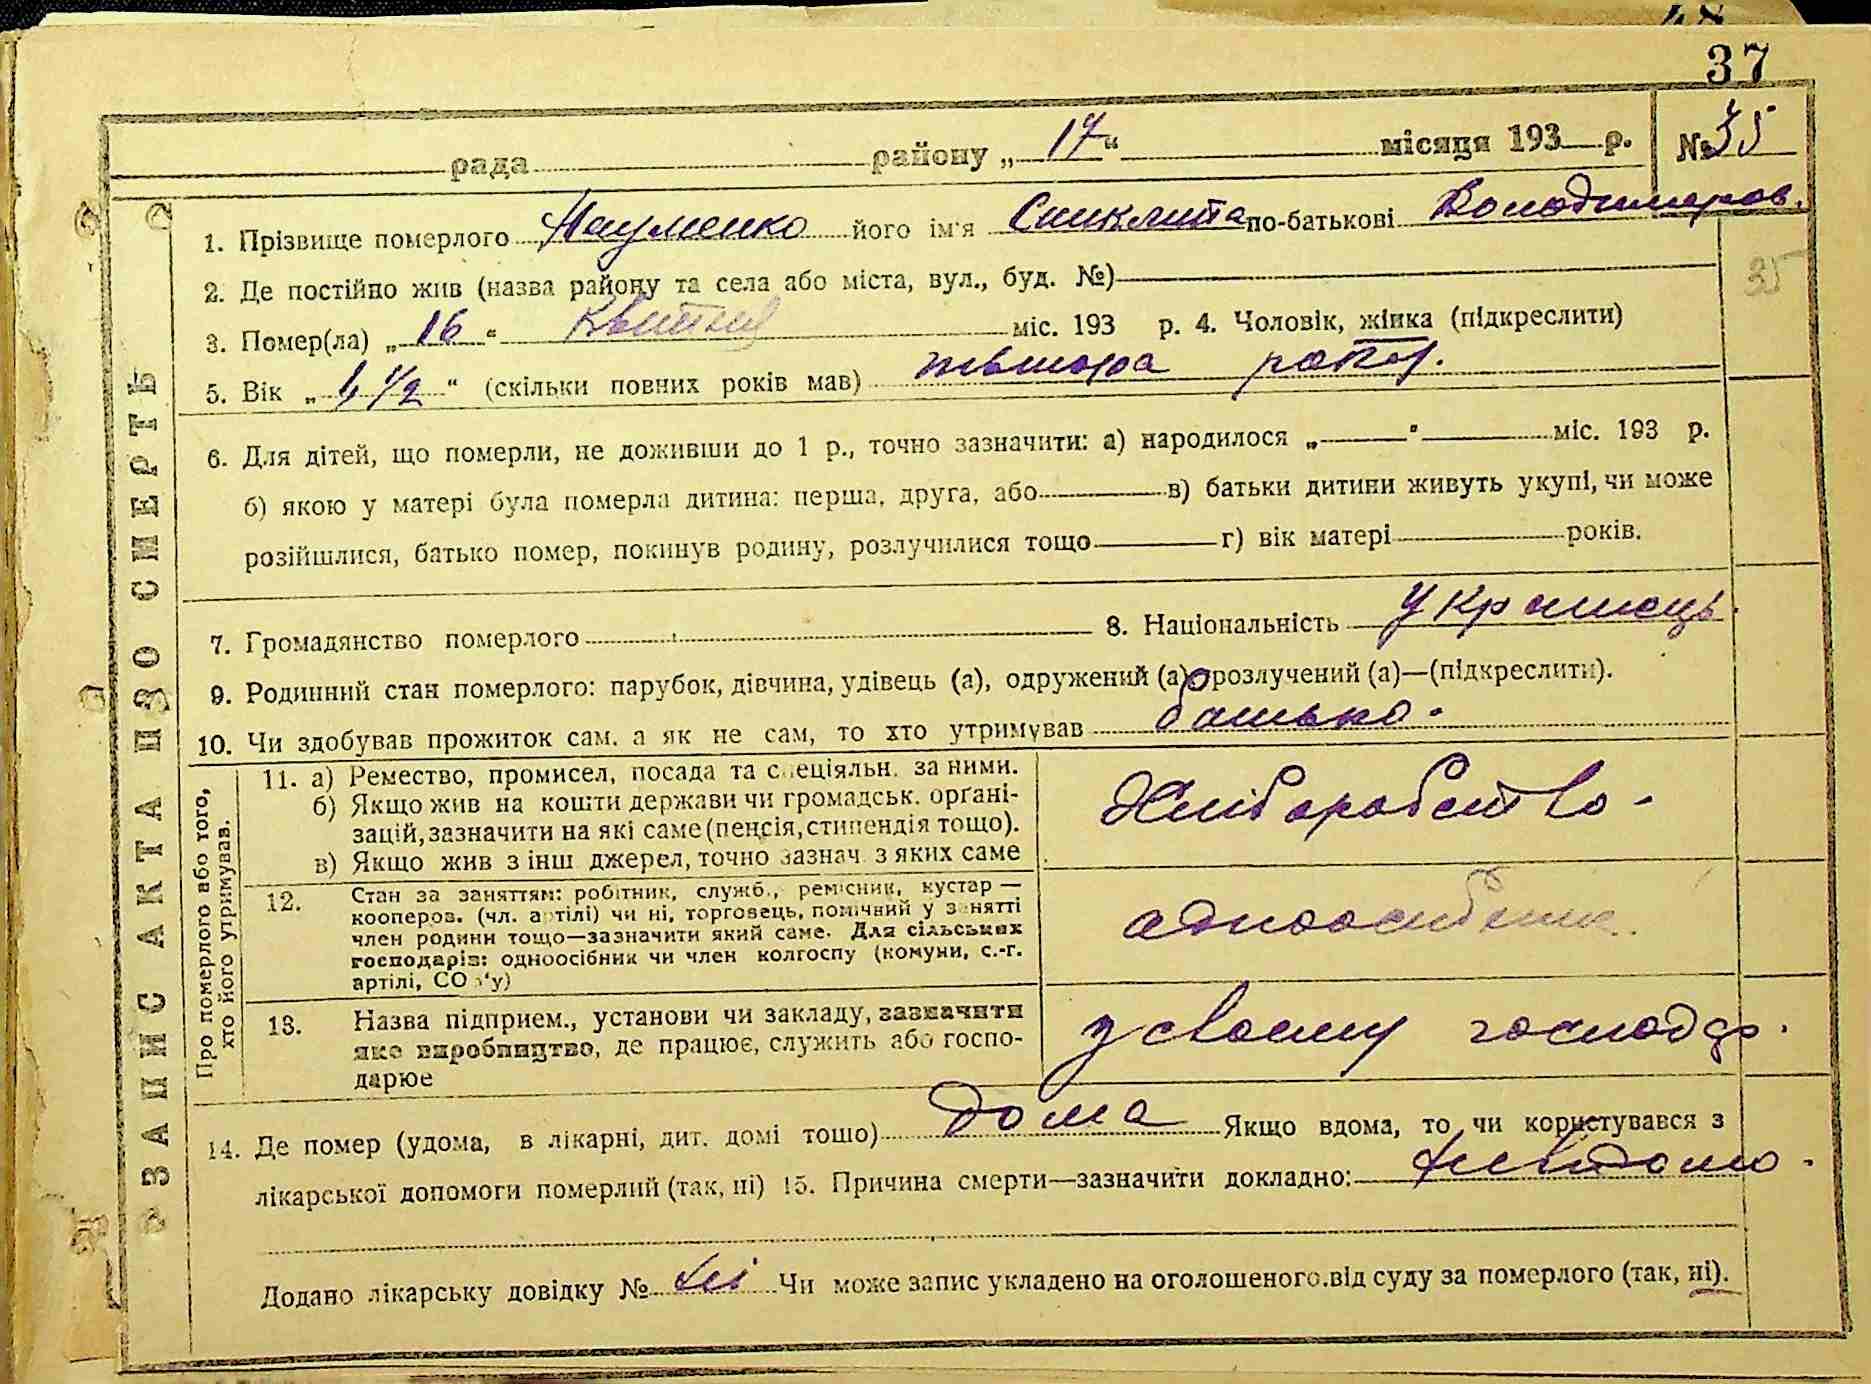 37
рада района „ 17 “ місяця 193 р. № 35
1. Прізвище померлого Науменко його ім'я Синклита по-батькові Володимиров.
2. Де постійно жив (назва району та села або міста, вул., буд. №)
35
3. Помер(ла) „ 16 “ Квітня міс. 193 р. 4. Чоловік, жінка (підкреслити)
5. Вік „ 1 1/2 “ (скільки повних років мав) півтора роки.
6. Для дітей, що померли, не доживши до 1 р., точно зазначити: а) народилося „ “ міс. 193 р.
б) якою у матері була померла дитина: перша, друга, або в) батьки дитини живуть укупі, чи може
розійшлися, батько помер, покинув родину, розлучилися тощо г) вік матері років.
7. Громадянство померлого 8. Національність Українець.
9. Родинний стан померлого: парубок, дівчина, удівець (а), одружений (а), розлучений (а)—(підкреслити).
10. Чи здобував прожиток сам. а як не сам, то хто утримував батько.
11. а) Ремество, промисел, посада та спеціяльн. за ними.
б) Якщо жив на кошти держави чи громадськ. органі-
зацій, зазначити на які саме (пенсія, стипендія тощо).
в) Якщо жив з інш джерел, точно зазнач з яких саме
Хліборобство.
12. Стан за заняттям: робітник, служб., ремісник, кустар —
кооперов. (чл. артілі) чи ні, торговець, помічний у занятті
член родини тощо—зазначити який саме. Для сільських
господарів: одноосібник чи член колгоспу (комуни, с.-г.
артілі, СО у)
одноосібник
13. Назва підприєм., установи чи закладу, зазначити
яке виробництво, де працює, служить або госпо-
дарює
у своєму господар.
Про померлого або того,
хто його утримував.
14. Де помер (удома, в лікарні, дит. домі тощо) дома Якщо вдома, то чи користувався з
лікарської допомоги померлий (так, ні) 15. Причина смерти—зазначити докладно: невідомо.
Додано лікарську довідку № ні Чи може запис укладено на оголошеного від суду за померлого (так, ні).
ЗАПИС АКТА ПРО СМЕРТЬ